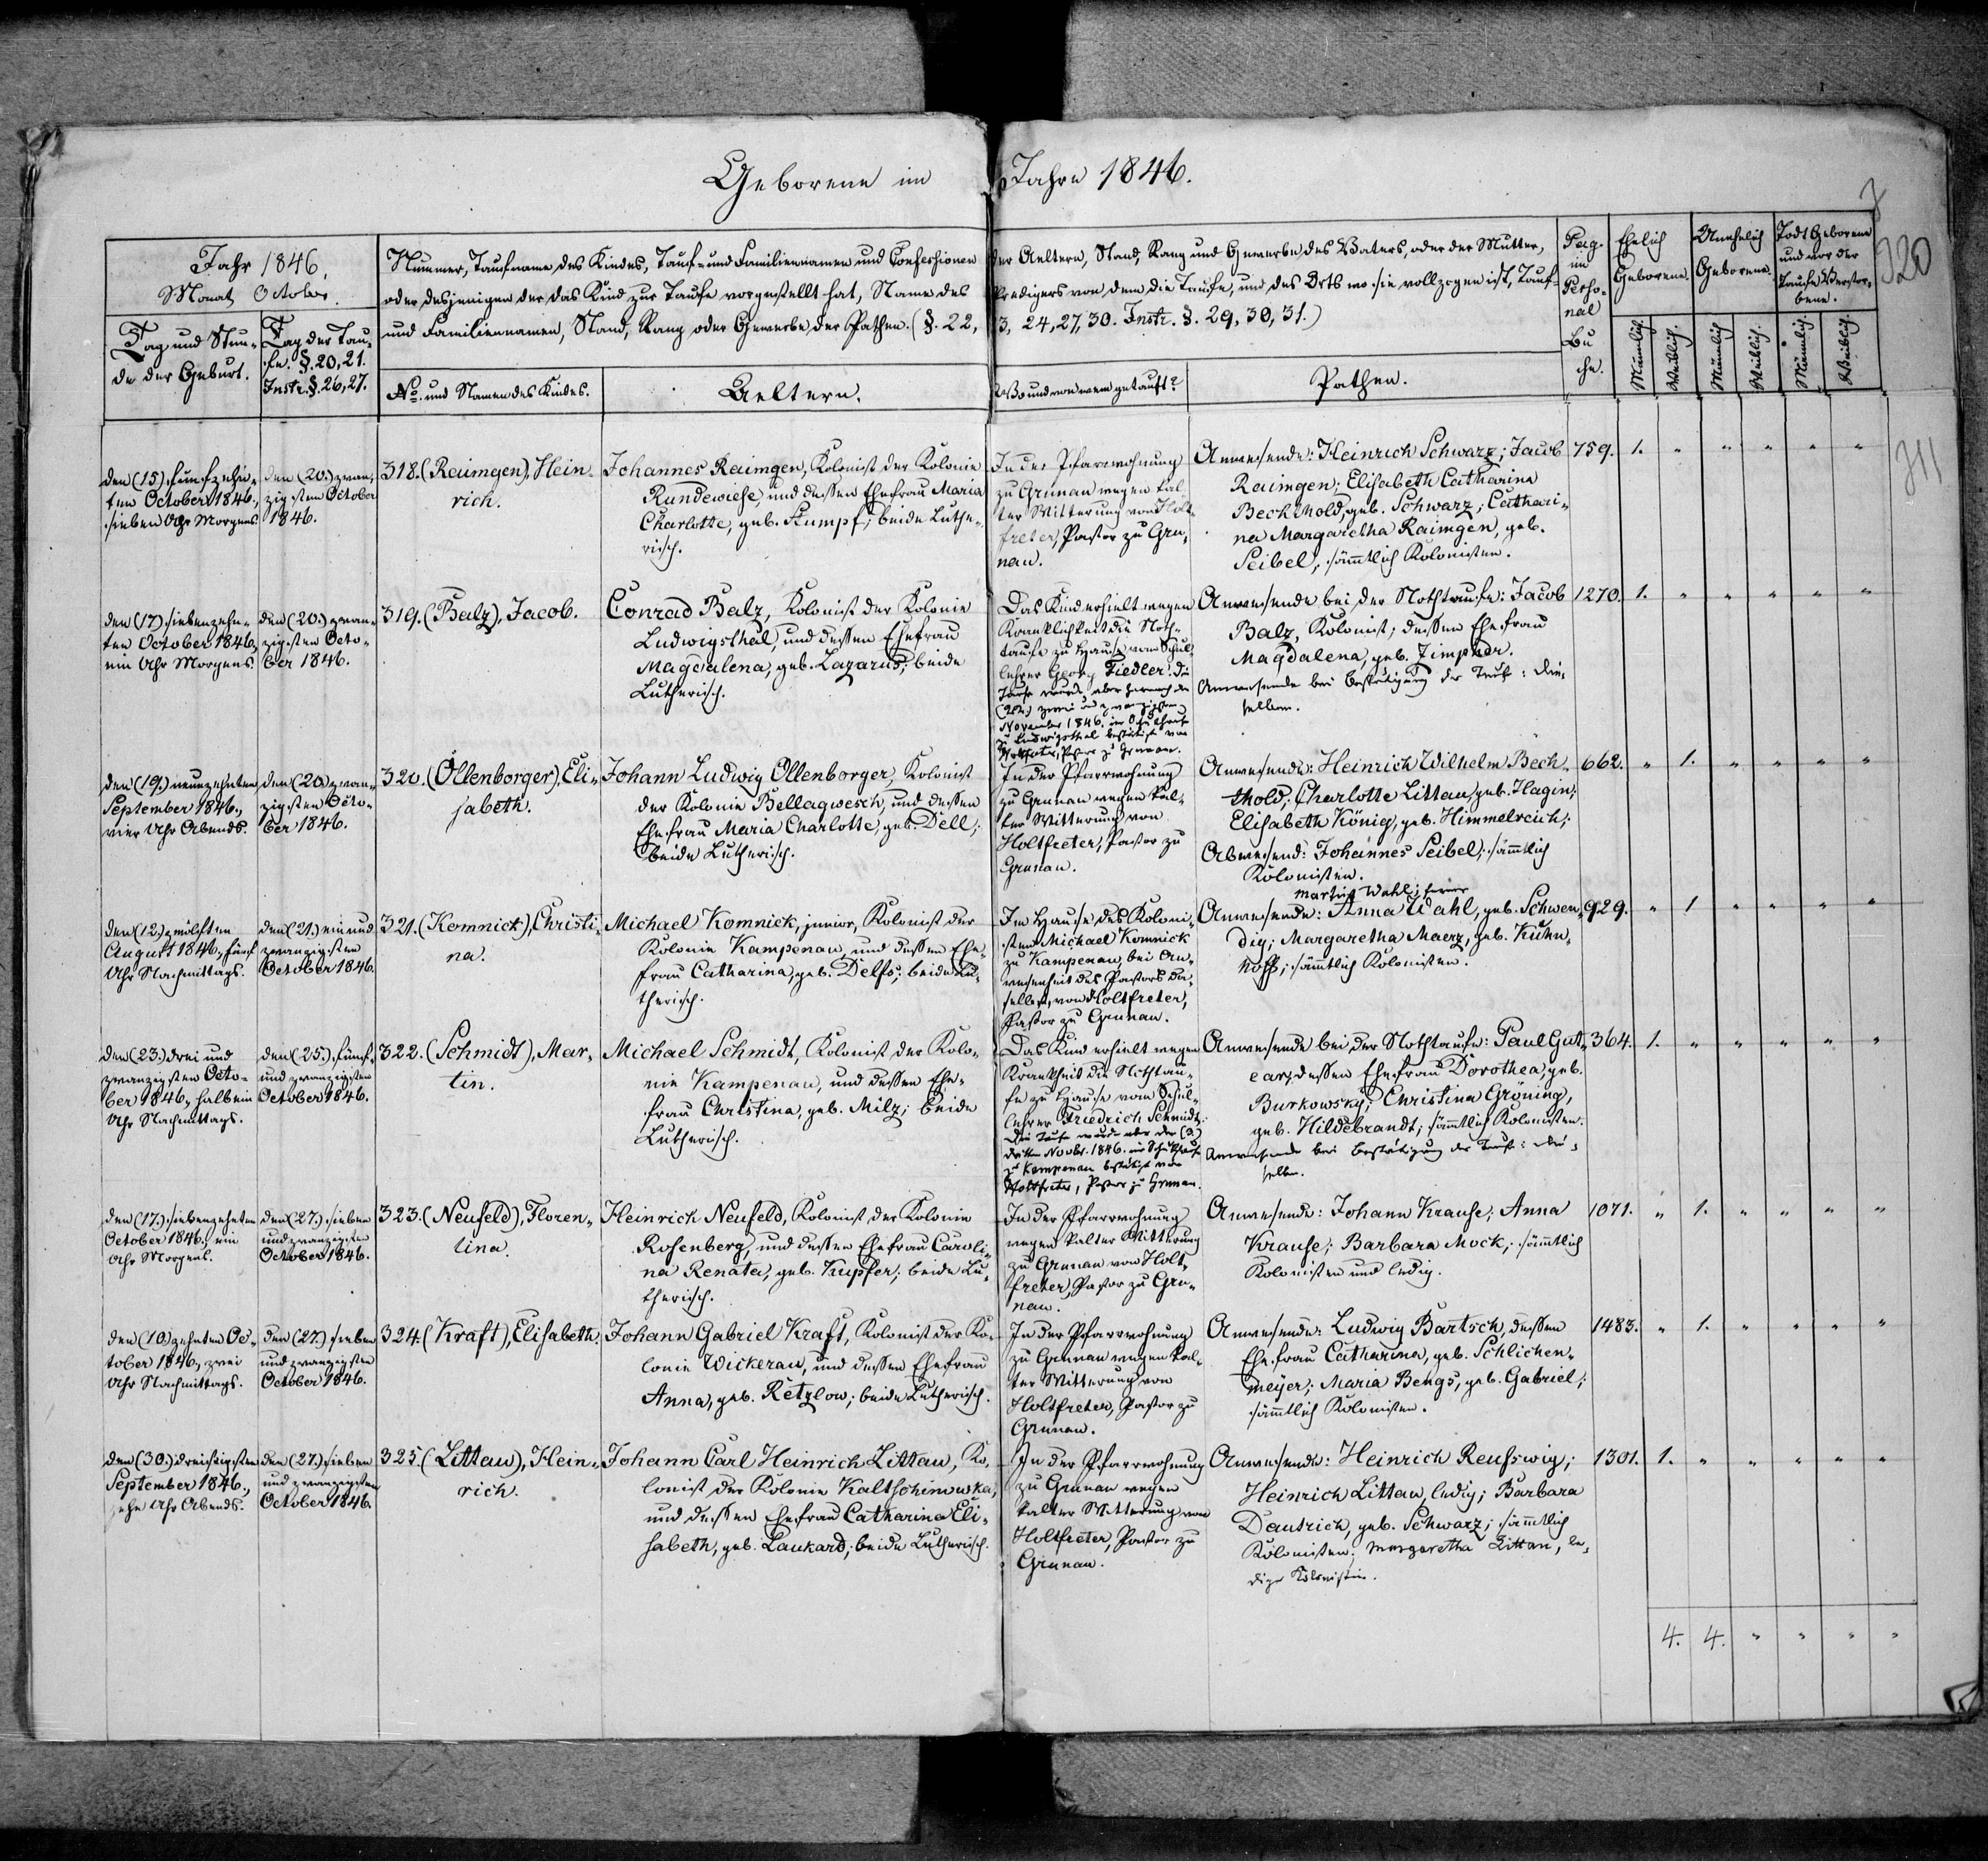 Geborene im Jahre 1846.
320
311
Jahr 1846.
Monat October.
Tag und Stun-
de der Geburt.
Tag der Tau-
fe. §. 20, 21.
Instr. §. 26, 27.
Nummer, Taufname des Kindes, Tauf- und Familiennamen und Confessionen der Aeltern, Stand, Rang und Gewerbe des Vaters, oder der Mutter,
oder desjenigen der das Kind zur Taufe vorgestellt hat, Name des Predigers von dem die Taufe, und des Orts wo sie vollzogen ist, Tauf-
und Familiennamen, Stand, Rang oder Gewerbe der Pathen. (§. 22, 23, 24, 27, 30. Instr. §. 29, 30, 31.)
No. und Namen des Kindes.
Aeltern.
Wo und von wem getauft?
Pathen.
Pag.
im
Perso-
nal
Bu
che.
Ehelich
Geborene.
Unehelich
Geborene.
Todt Geborene
und vor der
Taufe Verstor-
bene.
Männlich.
Weiblich.
Männlich
Weiblich.
Männlich.
Weiblich.
den (15.) fünfzehn-
ten October 1846.,
sieben Uhr Morgens
den (20.) zwan-
zigsten October
1846.
318. (Raimgen), Hein-
rich.
Johannes Raimgen, Kolonist der Kolonie
Rundewiese, und dessen Ehefrau Maria
Charlotte, geb. Stumpf; beide Luthe-
risch.
In der Pfarrwohnung
zu Grunau wegen kal-
ter Witterung von Holt-
freter, Pastor zu Gru-
nau.
Anwesende: Heinrich Schwarz; Jacob
Raimgen; Elisabeth Catharina
Bechthold, geb. Schwarz; Cathari-
na Margaretha Raimgen, geb.
Seibel, sämtlich Kolonisten.
759. 1. " " " " "
den (17.) siebenzehn-
ten October 1846.,
ein Uhr Morgens.
den (20.) zwan-
zigsten Octo-
ber 1846.
319. (Balz), Jacob.
Conrad Balz, Kolonist der Kolonie
Ludwigsthal, und dessen Ehefrau
Magdalena, geb. Lazarus; beide
Lutherisch.
Das Kind erhielt wegen
Kränklichkeit die Noth-
taufe zu Hause vom Schul-
lehrer Georg Fiedler. Die
Taufe wurde aber hernach den
(22.) zwei und zwanzigsten
November 1846. im Schulhause
zu Ludwigsthal bestätigt von
Holtfreter, Pastor zu Grunau.
Anwesende bei der Nothtaufe: Jacob
Balz, Kolonist; dessen Ehefrau
Magdalena, geb. Zimpher.
Anwesende bei Bestätigung der Taufe: Die-
selben.
1270. 1. " " " " "
den (19.) neunzehnten
September 1846.,
vier Uhr Abends.
den (20.) zwan-
zigsten Octo-
ber 1846.
320. (Ollenborger), Eli-
sabeth.
Johann Ludwig Ollenborger, Kolonist
der Kolonie Bellagwesch, und dessen
Ehefrau Maria Charlotte, geb. Dell;
beide Lutherisch.
In der Pfarrwohnung
zu Grunau wegen kal-
ter Witterung von
Holtfreter, Pastor zu
Grunau.
Anwesende: Heinrich Wilhelm Bech-
thold; Charlotte Littau, geb. Hagin;
Elisabeth König, geb. Himmelreich;
Abwesend: Johannes Seibel; sämtlich
Kolonisten.
662. " 1. " " " "
den (12.) zwölften
August 1846., fünf
Uhr Nachmittags.
den (21.) ein und
zwanzigsten
October 1846.
321. (Komnick), Christi-
na.
Michael Komnick, junior, Kolonist der
Kolonie Kampenau, und dessen Ehe-
frau Catharina, geb. Delfs; beide Lu-
therisch.
Im Hause des Koloni-
sten Michael Komnick
zu Kampenau, bei An-
wesenheit des Pastors da-
selbst, von Holtfreter,
Pastor zu Grunau.
Martin Wahl; ferner
Anwesende: Anna Wahl, geb. Schwen-
dig; Margaretha Maerz, geb. Kuhn-
hoff; sämtlich Kolonisten.
929. " 1 " " " "
den (23.) drei und
zwanzigsten Octo-
ber 1846., halb ein
Uhr Nachmittags.
den (25.) fünf
und zwanzigsten
October 1846.
322. (Schmidt), Mar-
tin.
Michael Schmidt, Kolonist der Kolo-
nie Kampenau, und dessen Ehe-
frau Christina, geb. Milz; beide
Lutherisch.
Das Kind erhielt wegen
Krankheit die Nothtau-
fe zu Hause vom Schul-
lehrer Friedrich Schmidt.
Die Taufe wurde aber den (3.)
dritten Novbr. 1846. im Schulhause
zu Kampenau bestätigt von
Holtfreter, Pastor zu Grunau.
Anwesende bei der Nothtaufe: Paul Gut-
car; dessen Ehefrau Dorothea, geb.
Burkowsky; Christina Gröning,
geb. Hildebrandt; sämtlich Kolonisten.
Anwesende bei Bestätigung der Taufe: Die-
selben.
364. 1. " " " " "
den (17.) siebenzehnten
October 1846., ein
Uhr Morgens.
den (27.) sieben
und zwanzigsten
October 1846.
323. (Neufeld), Floren-
tina.
Heinrich Neufeld, Kolonist der Kolonie
Rosenberg, und dessen Ehefrau Caroli-
na Renata, geb. Kupfer; beide Lu-
therisch.
In der Pfarrwohnung
wegen kalter Witterung
zu Grunau von Holt-
freter, Pastor zu Gru-
nau.
Anwesende: Johann Krause; Anna
Krause; Barbara Mock; sämtlich
Kolonisten und ledig.
1071. " 1. " " " "
den (10.) zehnten Oc-
tober 1846., zwei
Uhr Nachmittags.
den (27.) sieben
und zwanzigsten
October 1846.
324. (Kraft), Elisabeth.
Johann Gabriel Kraft, Kolonist der Ko-
lonie Wickerau, und dessen Ehefrau
Anna, geb. Retzlow; beide Lutherisch.
In der Pfarrwohnung
zu Grunau wegen kal-
ter Witterung von
Holtfreter, Pastor zu
Grunau.
Anwesende: Ludwig Bartsch, dessen
Ehefrau Catharina, geb. Schlichen-
meyer; Maria Bengs, geb. Gabriel;
sämtlich Kolonisten.
1483. " 1. " " " "
den (30.) dreissigsten
September 1846.,
zehn Uhr Abends.
den (27.) sieben
und zwanzigsten
October 1846.
325. (Littau), Hein-
rich.
Johann Carl Heinrich Littau, Ko-
lonist der Kolonie Kaltschinowka,
und dessen Ehefrau Catharina Eli-
sabeth, geb. Laukard; beide Lutherisch.
In der Pfarrwohnung
zu Grunau wegen
kalter Witterung von
Holtfreter, Pastor zu
Grunau.
Anwesende: Heinrich Reusswig;
Heinrich Littau, ledig; Barbara
Dautrich, geb. Schwarz; sämtlich
Kolonisten; Margaretha Littau, le-
dige Kolonistin.
1301. 1. " " " " "
4. 4. " " " "